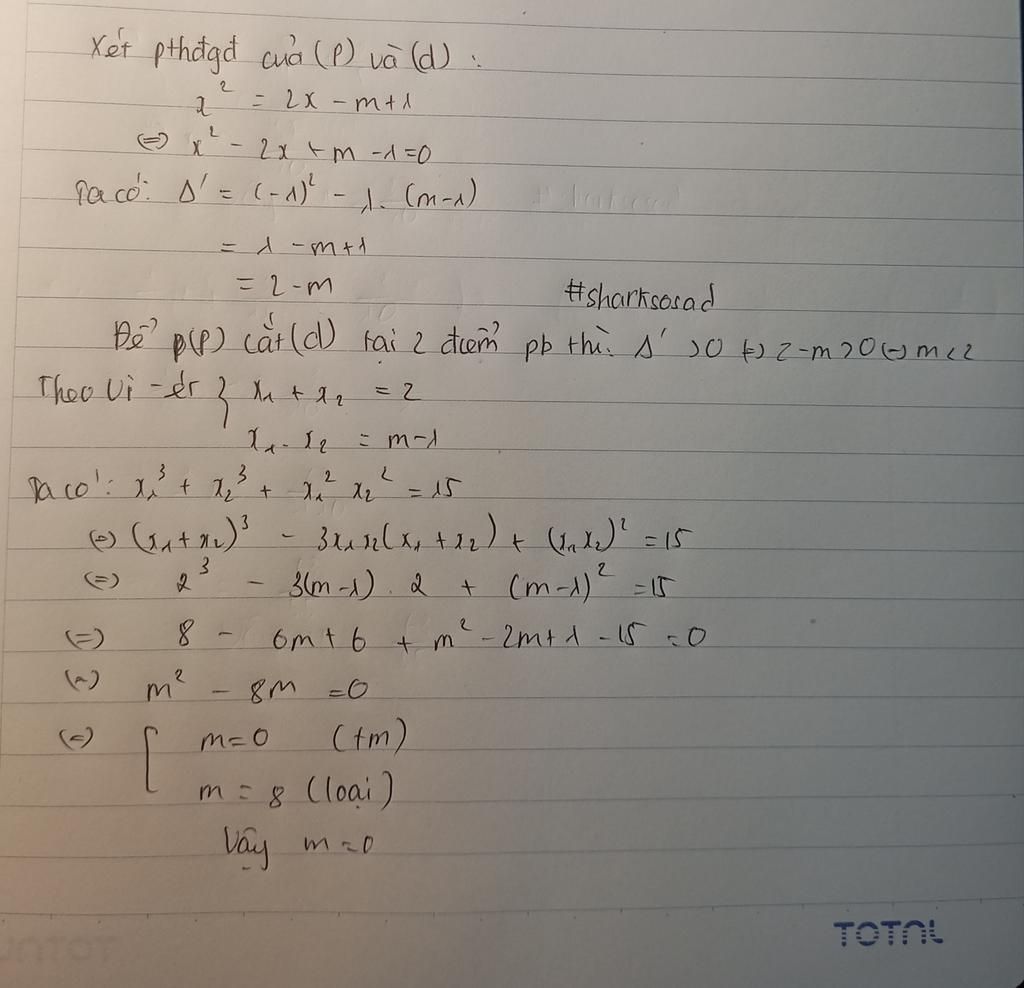 Xét pthđgđ của (P) và (d) :
x² = 2x - m+1
(=) x² - 2x + m -1=0
Ta có: Δ' = (-1)² - 1. (m-1)
= 1 -m+1
= 2-m
#sharksosad
Để p(P) cắt (d) tại 2 điểm pb thì: Δ' >0 (=) 2-m>0 (=) m<2
Theo Vi-ét { x₁ + x₂ = 2
x₁. x₂ = m-1
Ta có: x₁³ + x₂³ + x₁² x₂² = 15
(=) (x₁+x₂)³ - 3x₁x₂(x₁+x₂) + (x₁x₂)² = 15
(=) 2³ - 3(m-1) . 2 + (m-1)² =15
(=) 8 - 6m+6 + m² -2m+1 -15 =0
(=) m² - 8m =0
(=) [ m=0 (tm)
m = 8 (loại)
Vậy m=0
TOTAL